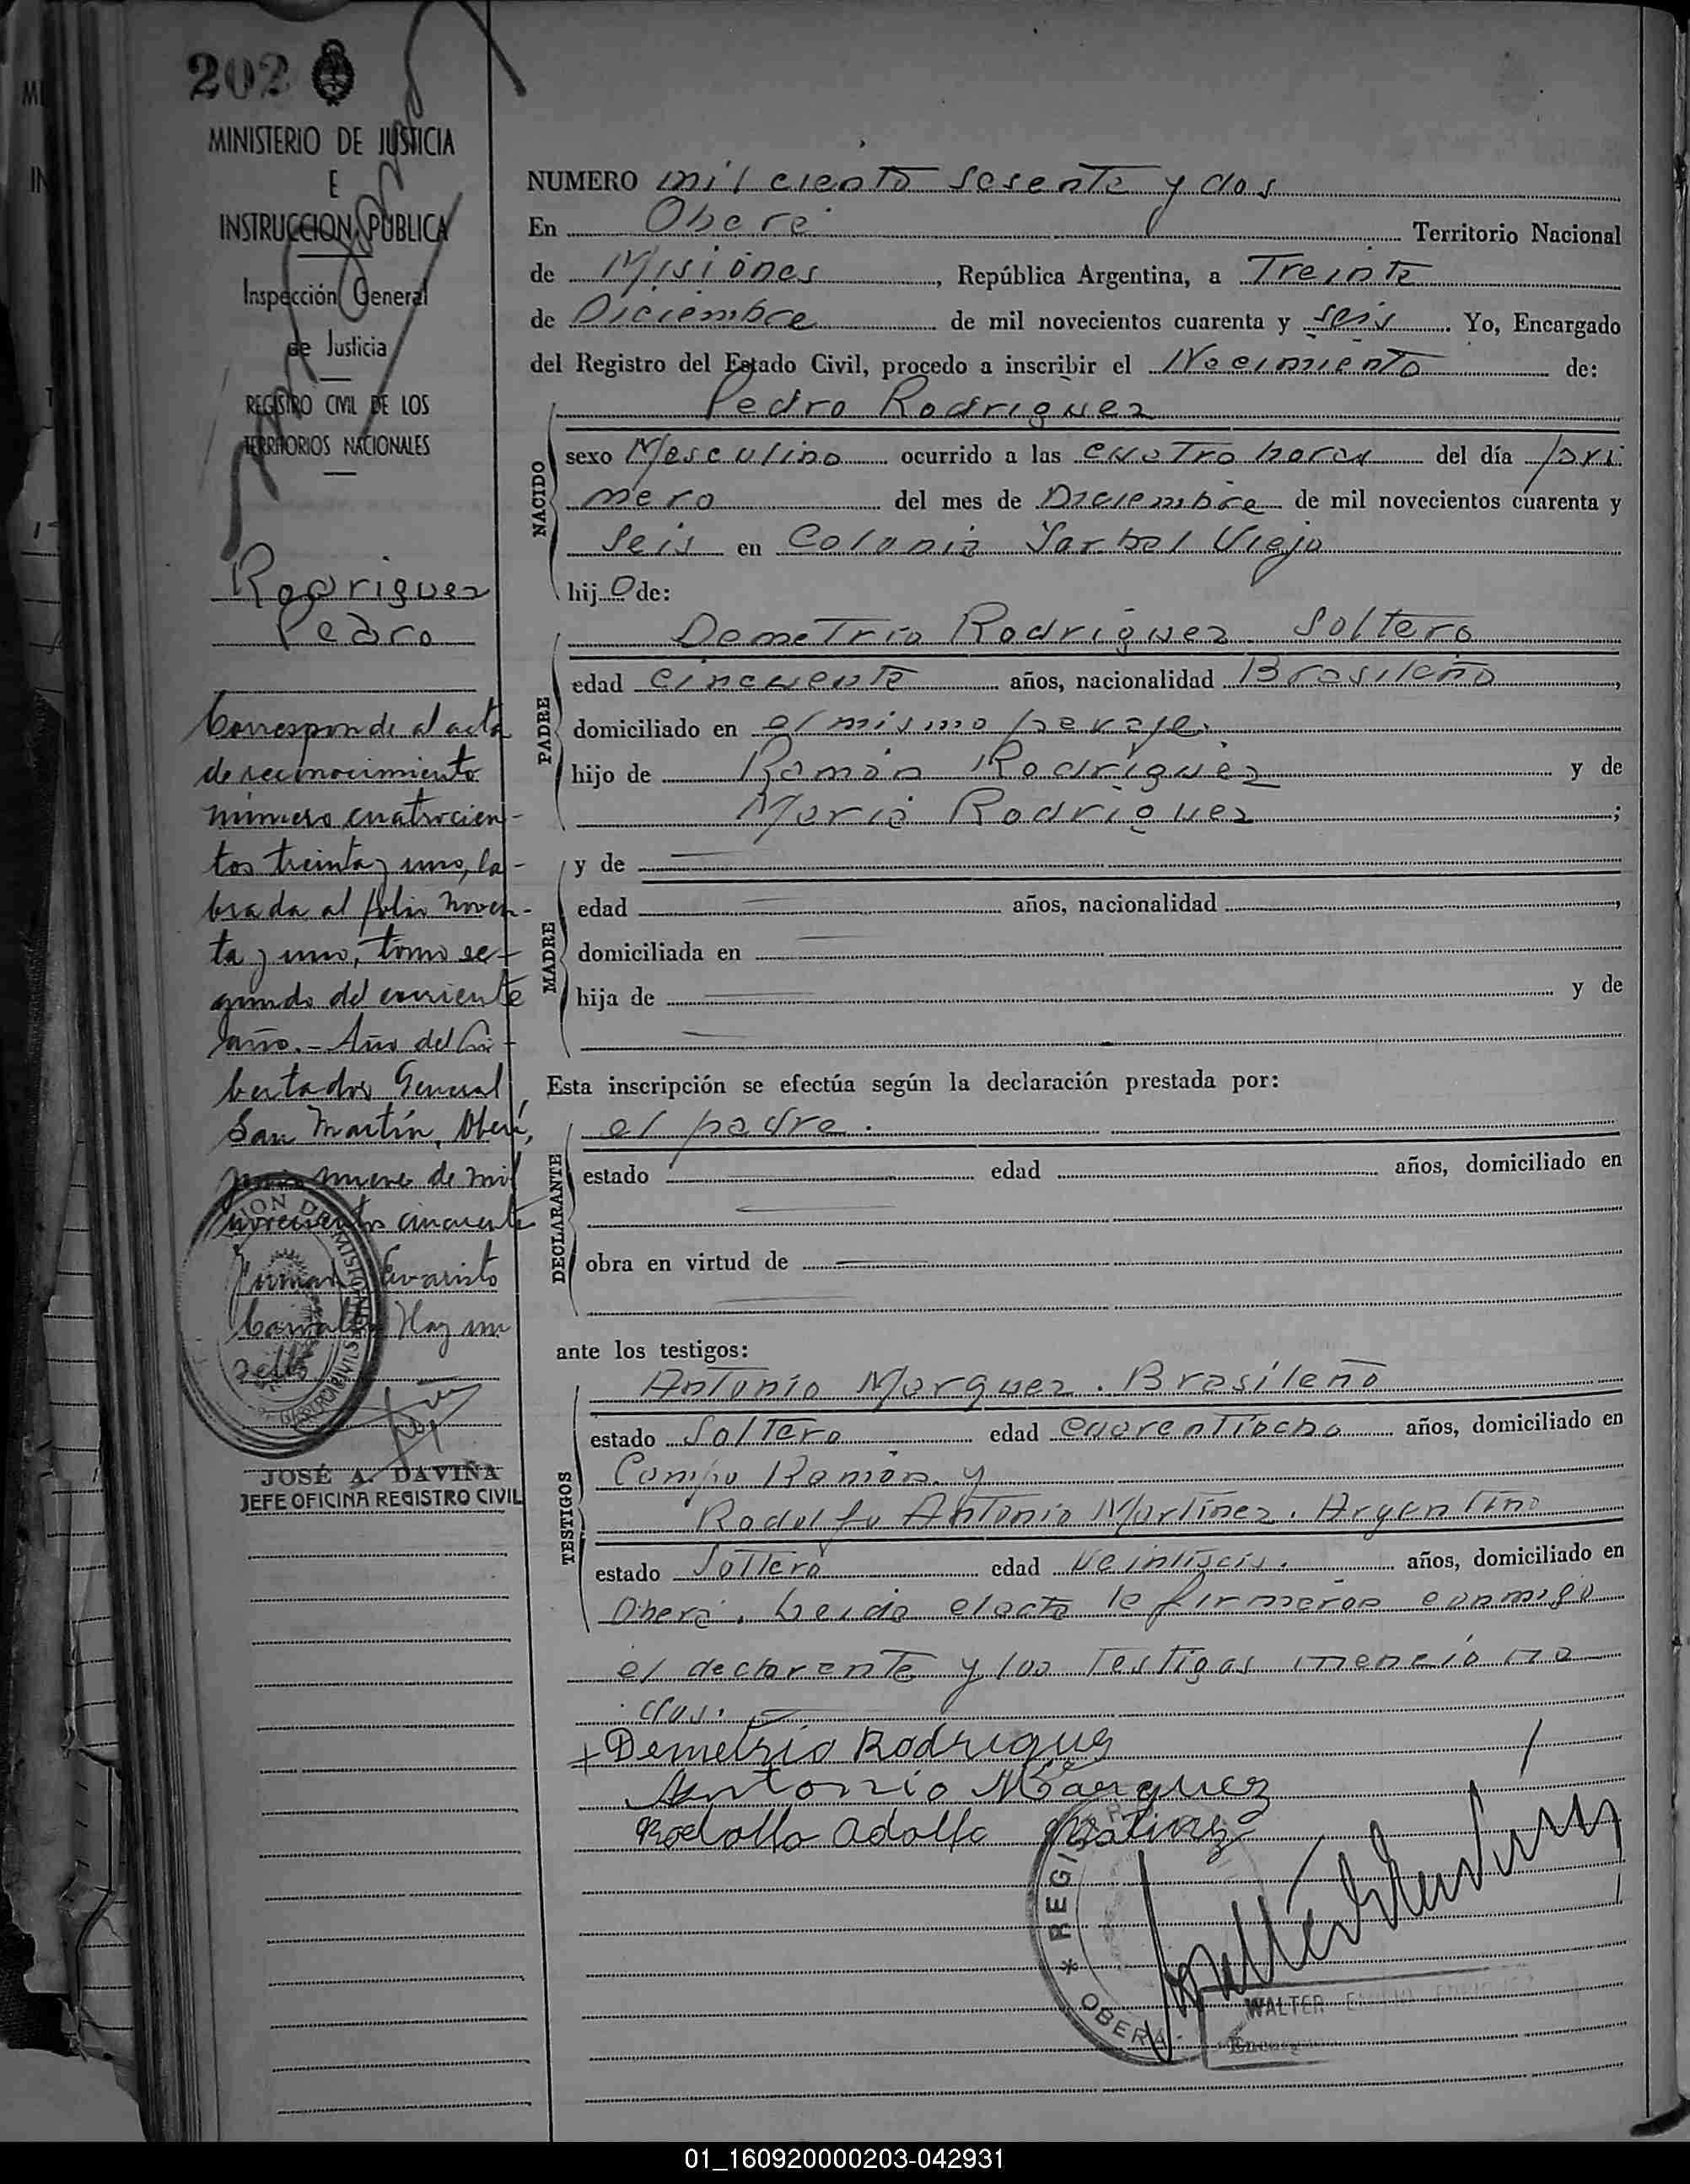 202
MINISTERIO DE JUSTICIA
E
INSTRUCCION PUBLICA
Inspección General
de Justicia
REGISTRO CIVIL DE LOS
TERRITORIOS NACIONALES
Rodriguez
Pedro
Corresponde al acta
de reconocimiento
número cuatrocien-
tos treinta y uno, la-
brada al folio noven-
ta y uno, tomo se-
gundo del corriente
año.- Año del Li-
bertador General
San Martín, Oberá,
junio nueve de mil
novecientos cincuenta
Firman Evaristo
Hay un
sello
JOSÉ A. DAVIÑA
JEFE OFICINA REGISTRO CIVIL
NUMERO mil ciento sesenta y dos
En Oberá Territorio Nacional
de Misiones, República Argentina, a Treinta
de Diciembre de mil novecientos cuarenta y seis. Yo, Encargado
del Registro del Estado Civil, procedo a inscribir el Nacimiento de:
Pedro Rodriguez
NACIDO
sexo Masculino ocurrido a las cuatro horas del día pri
mero del mes de Diciembre de mil novecientos cuarenta y
Seis en Colonia Yarbal Viejo
hijo de:
PADRE
Demetrio Rodriguez. Soltero
edad cincuenta años, nacionalidad Brasileño,
domiciliado en el mismo paraje.
hijo de Ramón Rodriguez y de
Maria Rodriguez;
MADRE
y de
edad años, nacionalidad,
domiciliada en
hija de y de
Esta inscripción se efectúa según la declaración prestada por:
DECLARANTE
el padre.
estado edad años, domiciliado en
obra en virtud de
ante los testigos:
TESTIGOS
Antonio Marquez. Brasileño
estado Soltero edad cuarentiocho años, domiciliado en
Campo Ramón y
Rodolfo Antonio Martinez. Argentino
estado Soltero edad veintiseis. años, domiciliado en
Oberá. Leida el acta la firmaron conmigo
el declarante y los Testigos menciona
dos.
+ Demetrio Rodrigues
Antonio Marquez
Rodolfo Adolfo Matinez
* REGIS
OBERA
WALTER
Encarg
01_160920000203-042931